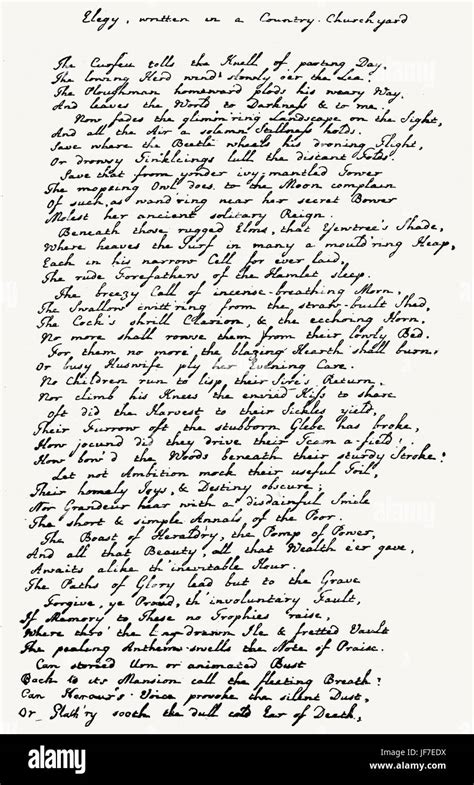 Elegy, written in a Country Churchyard
The Curfeu tolls the Knell of parting Day,
The lowing Herd wind slowly o'er the Lea,
The Ploughman homeward plods his weary Way,
And leaves the World to Darkness & to me.
Now fades the glimm'ring Landscape on the Sight,
And all the Air a solemn Stillness holds.
Save where the Beetle wheels his droning Flight,
Or drowsy Tinklings lull the distant Folds.
Save that from yonder ivy-mantled Tower
The mopeing Owl does to the Moon complain
Of such, as wand'ring near her secret Bower
Molest her ancient solitary Reign.
Beneath those rugged Elms, that Yewtree's Shade,
Where heaves the Turf in many a mould'ring Heap,
Each in his narrow Cell for ever laid,
The rude Forefathers of the Hamlet sleep.
The breezy Call of incense-breathing Morn,
The Swallow twitt'ring from the straw-built Shed,
The Cock's shrill Clarion, & the ecchoing Horn,
No more shall rowse them from their lowly Bed.
For them no more the blazing Hearth shall burn,
Or busy Huswife ply her Evening Care.
No Children run to lisp their Sire's Return,
Nor climb his Knees the envied Kiss to share
Oft did the Harvest to their Sickles yield,
Their Furrow oft the stubborn Glebe has broke,
How jocund did they drive their Team a-field!
How bow'd the Woods beneath their sturdy Stroke!
Let not Ambition mock their useful Toil,
Their homely Joys, & Destiny obscure;
Nor Grandeur hear with a disdainful Smile
The short & simple Annals of the Poor.
The Boast of Heraldry, the Pomp of Power,
And all that Beauty, all that Wealth e'er gave,
Awaits alike th' inevitable Hour.
The Paths of Glory lead but to the Grave
Forgive, ye Proud, th' involuntary Fault,
If Memory to These no Trophies raise,
Where thro' the long-drawn Ile & fretted Vault
The pealing Anthem swells the Note of Praise.
Can storied Urn or animated Bust
Back to its Mansion call the fleeting Breath?
Can Honour's Voice provoke the silent Dust,
Or Flatt'ry sooth the dull cold Ear of Death,
alamy
alamy stock photo
JF7EDX
www.alamy.com